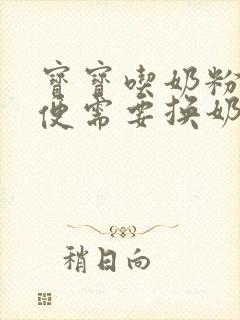 寶寶喫奶粉
便需要換奶
稍日向